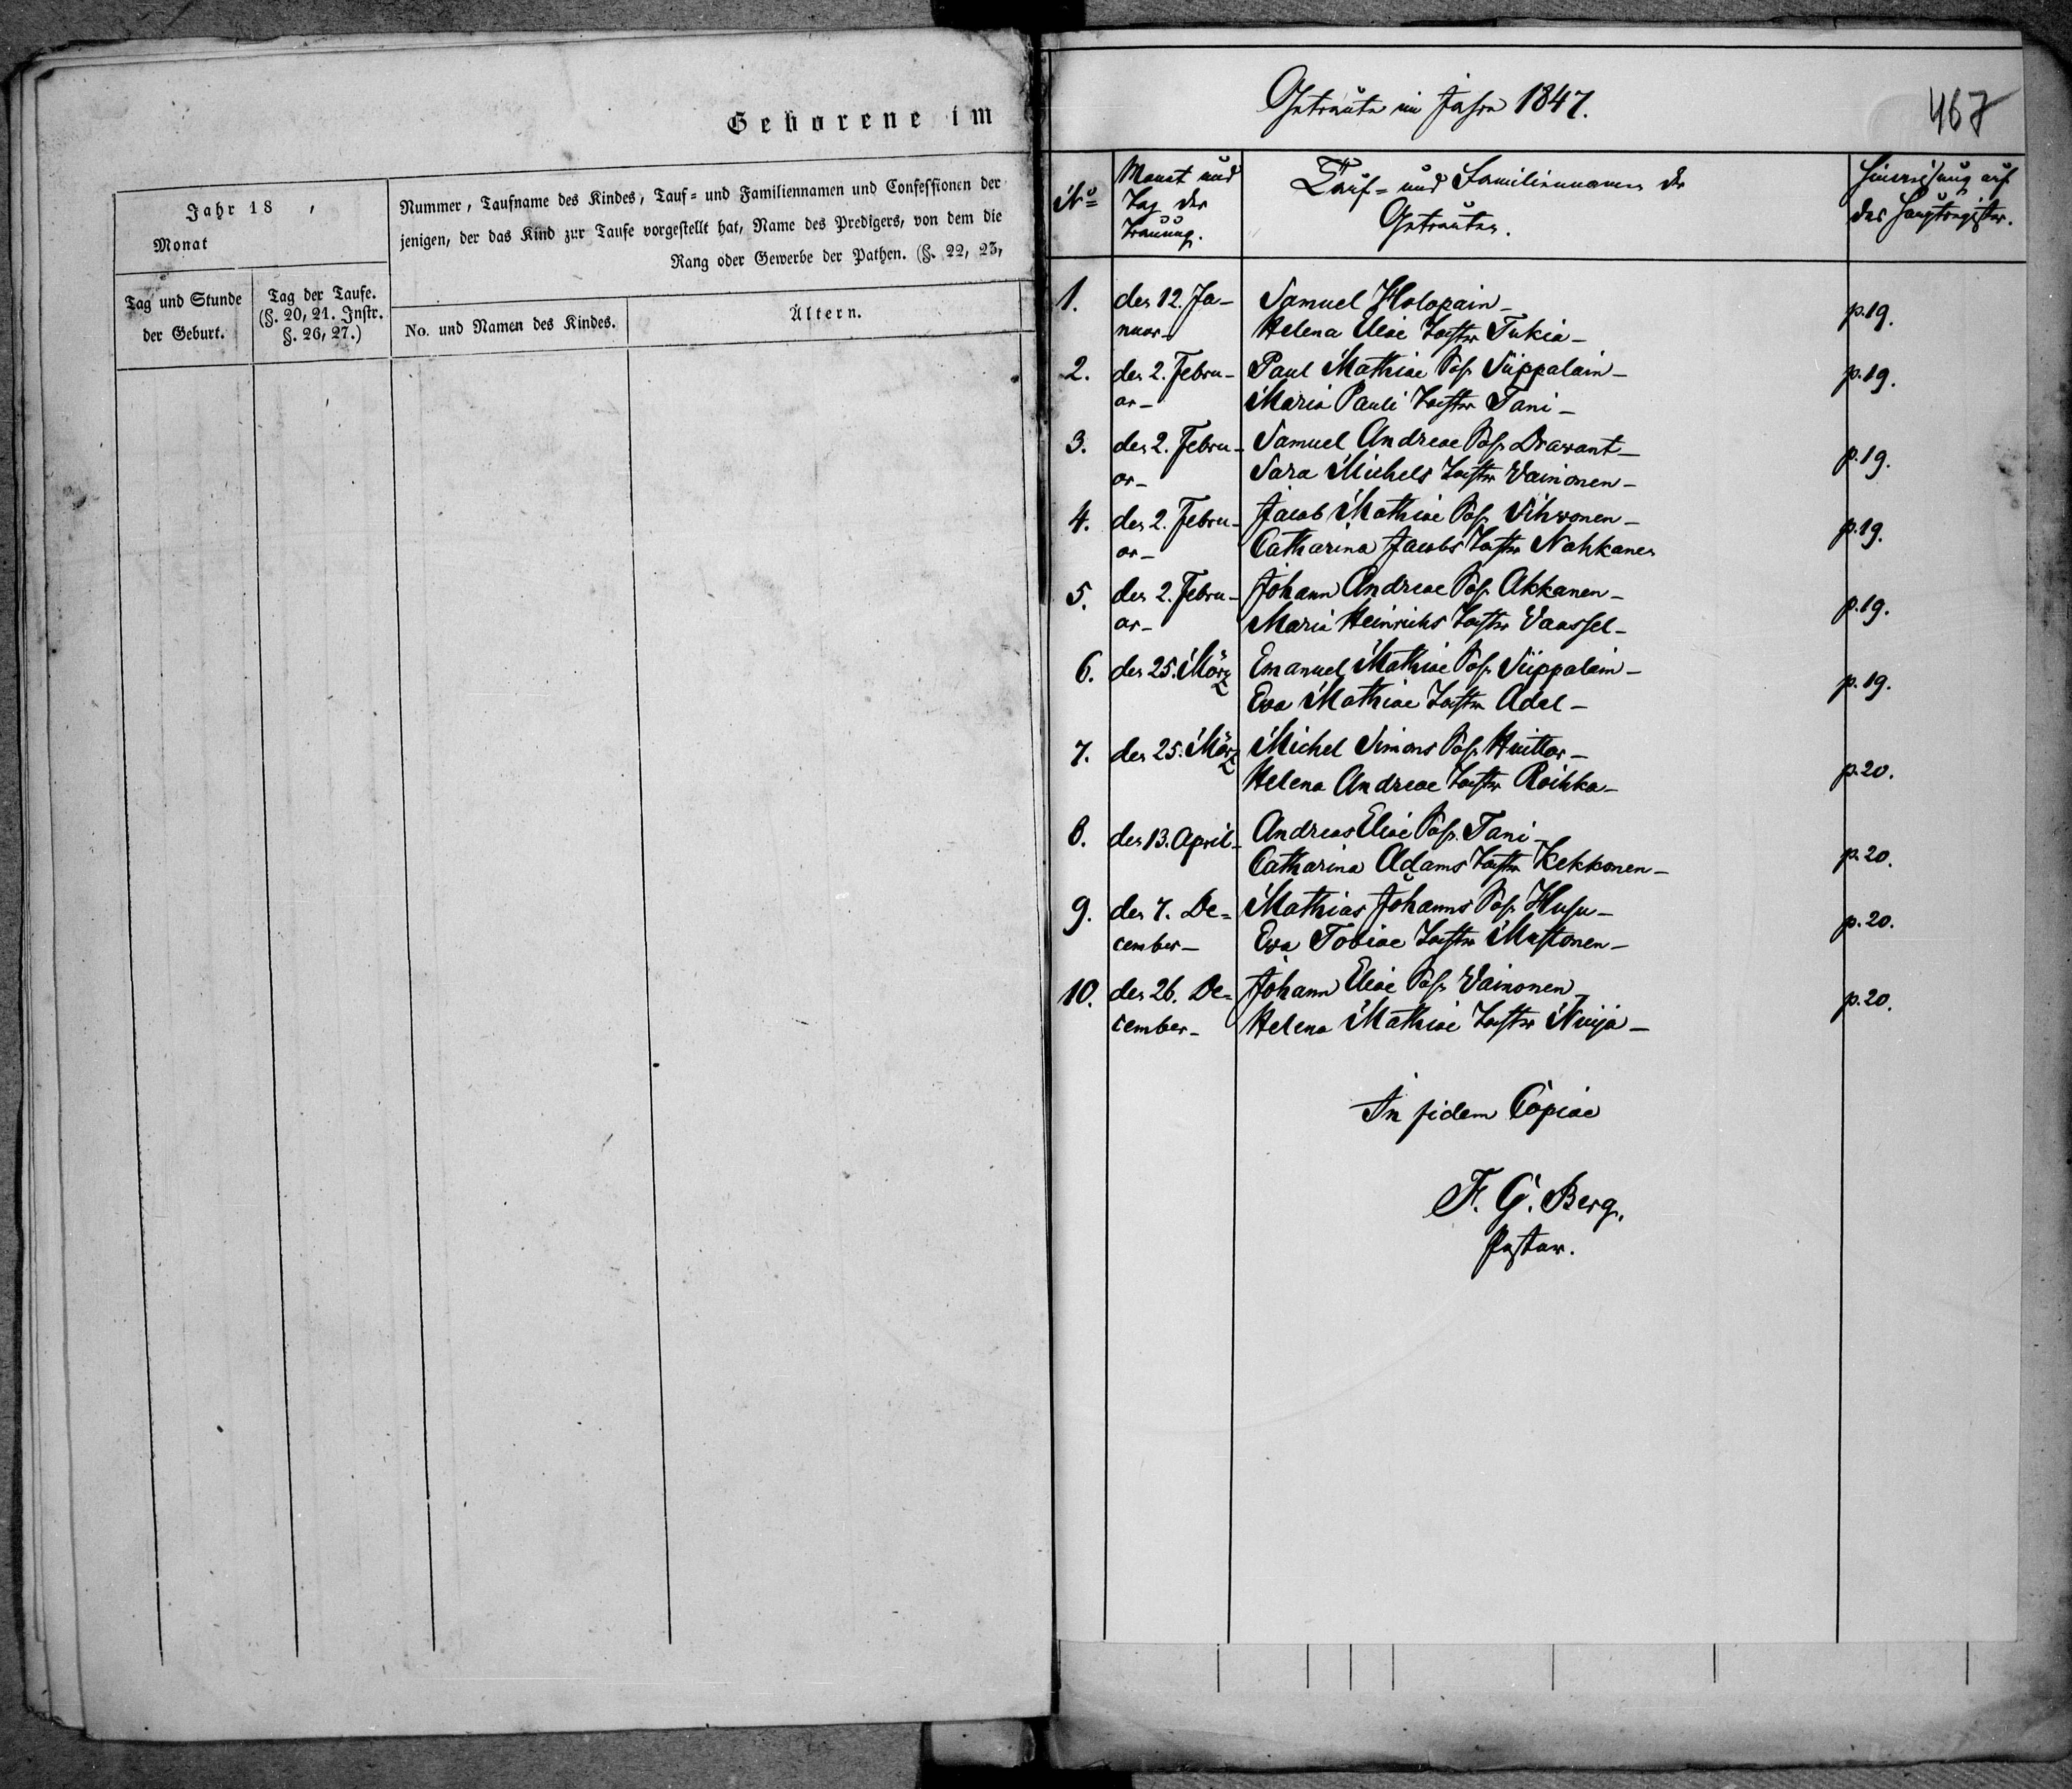 Geborene im
Jahr 18 ,
Monat
Nummer, Taufname des Kindes, Tauf= und Familiennamen und Confessionen der
jenigen, der das Kind zur Taufe vorgestellt hat, Name des Predigers, von dem die
Rang oder Gewerbe der Pathen. (§. 22, 23,
Tag und Stunde
der Geburt.
Tag der Taufe.
(§. 20, 21. Instr.
§. 26, 27.)
No. und Namen des Kindes.
Ältern.
Getraute im Jahre 1847.
467
No
Monat und
Tag der
Trauung.
Tauf= und Familiennamen der
Getrauten.
Hinweisung auf
das Hauptregister.
1. den 12. Ja- Samuel Holopain- p.19.
nuar- Helena Eliae Tochter Tukia-
2. den 2. Febru- Paul Mathiae Sohn Siippalain- p.19.
ar- Maria Pauli Tochter Tani-
3. den 2. Febru- Samuel Andreae Sohn Orawant- p.19.
ar- Sara Michels Tochter Wainonen-
4. den 2. Febru- Jacob Mathiae Sohn Sihvonen- p.19.
ar- Catharina Jacobs Tochter Nahkanen
5. den 2. Febru- Johann Andreae Sohn Akkanen- p.19.
ar- Maria Heinrichs Tochter Vanssel-
6. den 25. März Emanuel Mathiae Sohn Siippalain- p.19.
Eva Mathiae Tochter Adel-
7. den 25. März Michel Simons Sohn Huittar- p.20.
Helena Andreae Tochter Roihka-
8. den 13. April- Andreas Eliae Sohn Tani- p.20.
Catharina Adams Tochter Kekkonen-
9. den 7. De= Mathias Johanns Sohn Husu- p.20.
cember- Eva Tobiae Tochter Mustonen-
10. den 26. De= Johann Eliae Sohn Vainonen p.20.
cember- Helena Mathiae Tochter Nuija-
In fidem Copiae
F. G. Berg.
Pastor.